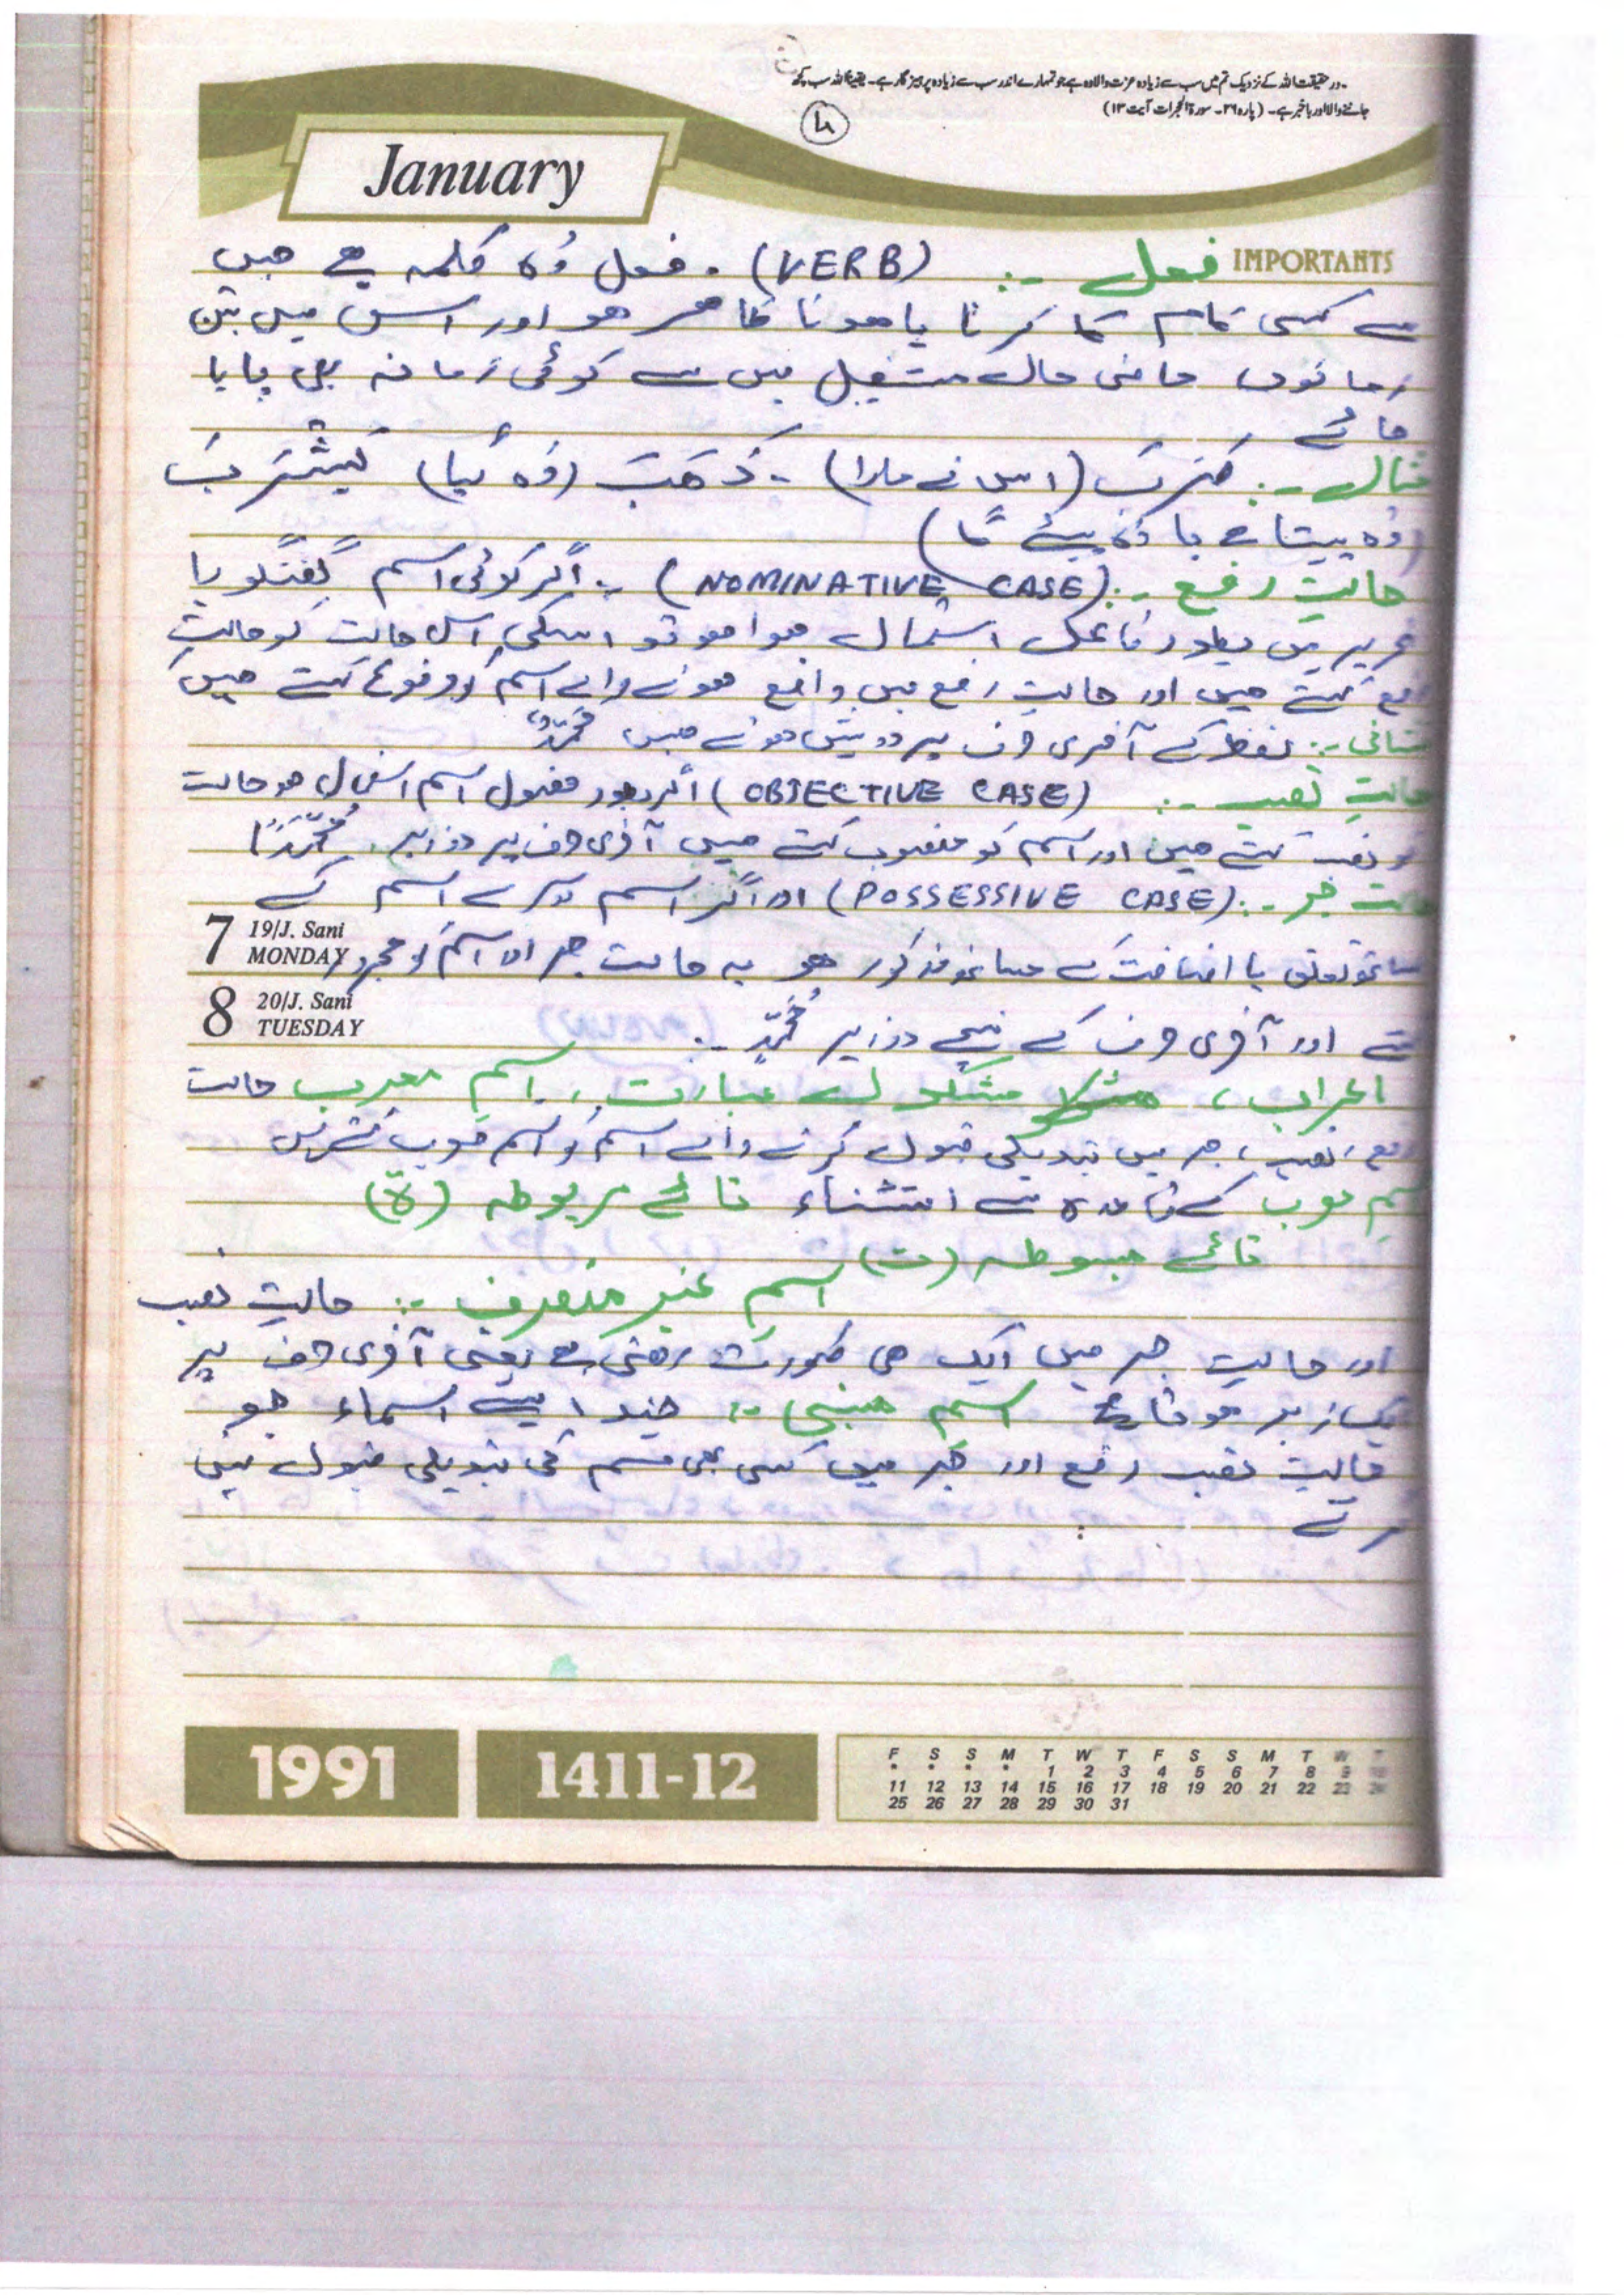 ۔ در حقیقت اللہ کے نزدیک تم میں سب سے زیادہ عزت والا وہ ہے جو تمہارے اندر سب سے زیادہ پرہیز گار ہے۔ یقیناً اللہ سب کچھ
جاننے والا اور باخبر ہے۔ (پارہ ۲۶۔ سورۃ الحجرات آیت ۱۳)
January
IMPORTANTS
فعل :- (VERB) . فعل وُہ کلمہ ہے جس
سے کسی کام کا کرنا یا ہونا ظاہر ہو اور اس میں تین
زمانوں ماضی حال مستقبل میں سے کوئی زمانہ بھی پایا
جائے
مثال :- ضَرَبَ (اس نے مارا) - ذَھَبَ (وُہ گیا) یَشْرَبُ
(وُہ پیتا ہے یا وُہ پیئے گا)
حالتِ رفع :- (NOMINATIVE CASE) :- اگر کوئی اسم گفتگو یا
تحریر میں بطور فاعل استمال ہوا ہو تو اسکی اس حالت کو حالتِ
رفع کہتے ہیں اور حالتِ رفع میں واقع ہونے والے اسم کو مرفوع کہتے ہیں
نشانی :- لفظ کے آخری حرف پر دو پیش ہوتے ہیں مُحَمَّدٌ
حالتِ نصب :- (OBJECTIVE CASE) اگر بطور مفعول اسم استعمال ہو حالت
کو نصب کہتے ہیں اور اسم کو منصوب کہتے ہیں آخری حرف پر دو زبر . مُحَمَّدًا
حالت جر :- (POSSESSIVE CASE) اور اگر اسم دوسرے اسم کے
7 19/J. Sani MONDAY
ساتھ تعلق یا اضافت کے ساتھ مذکور ہو یہ حالت جر اور اسم کو مجرور
8 20/J. Sani TUESDAY
کہتے اور آخری حرف کے نیچے دو زیر مُحَمَّدٍ :-
اعراب ، مشکل لے عبارت ، اسمِ معرب حالت
رفع ، نصب ، جر میں تبدیلی قبول کرنے والے اسم کو اسم معرب کہتے ہیں
اسمِ معرب کے قاعدہ سے استثناء تائے مربوطہ (ۃ)
تائے مبسوطہ (ت)
اسمِ غیر منصرف :- حالتِ نصب
اور حالتِ جر میں ایک ہی صورت رھتی ہے یعنی آخری حرف پر
ایک زبر ہوتا ہے اسمِ مبنی :- چند ایسے اسماء جو
حالتِ نصب رفع اور جر میں کسی بھی قسم کی تبدیلی قبول نہیں
کرتے
1991 1411-12
F S S M T W T F S S M T W T
* * * * 1 2 3 4 5 6 7 8 9 10
11 12 13 14 15 16 17 18 19 20 21 22 23 24
25 26 27 28 29 30 31